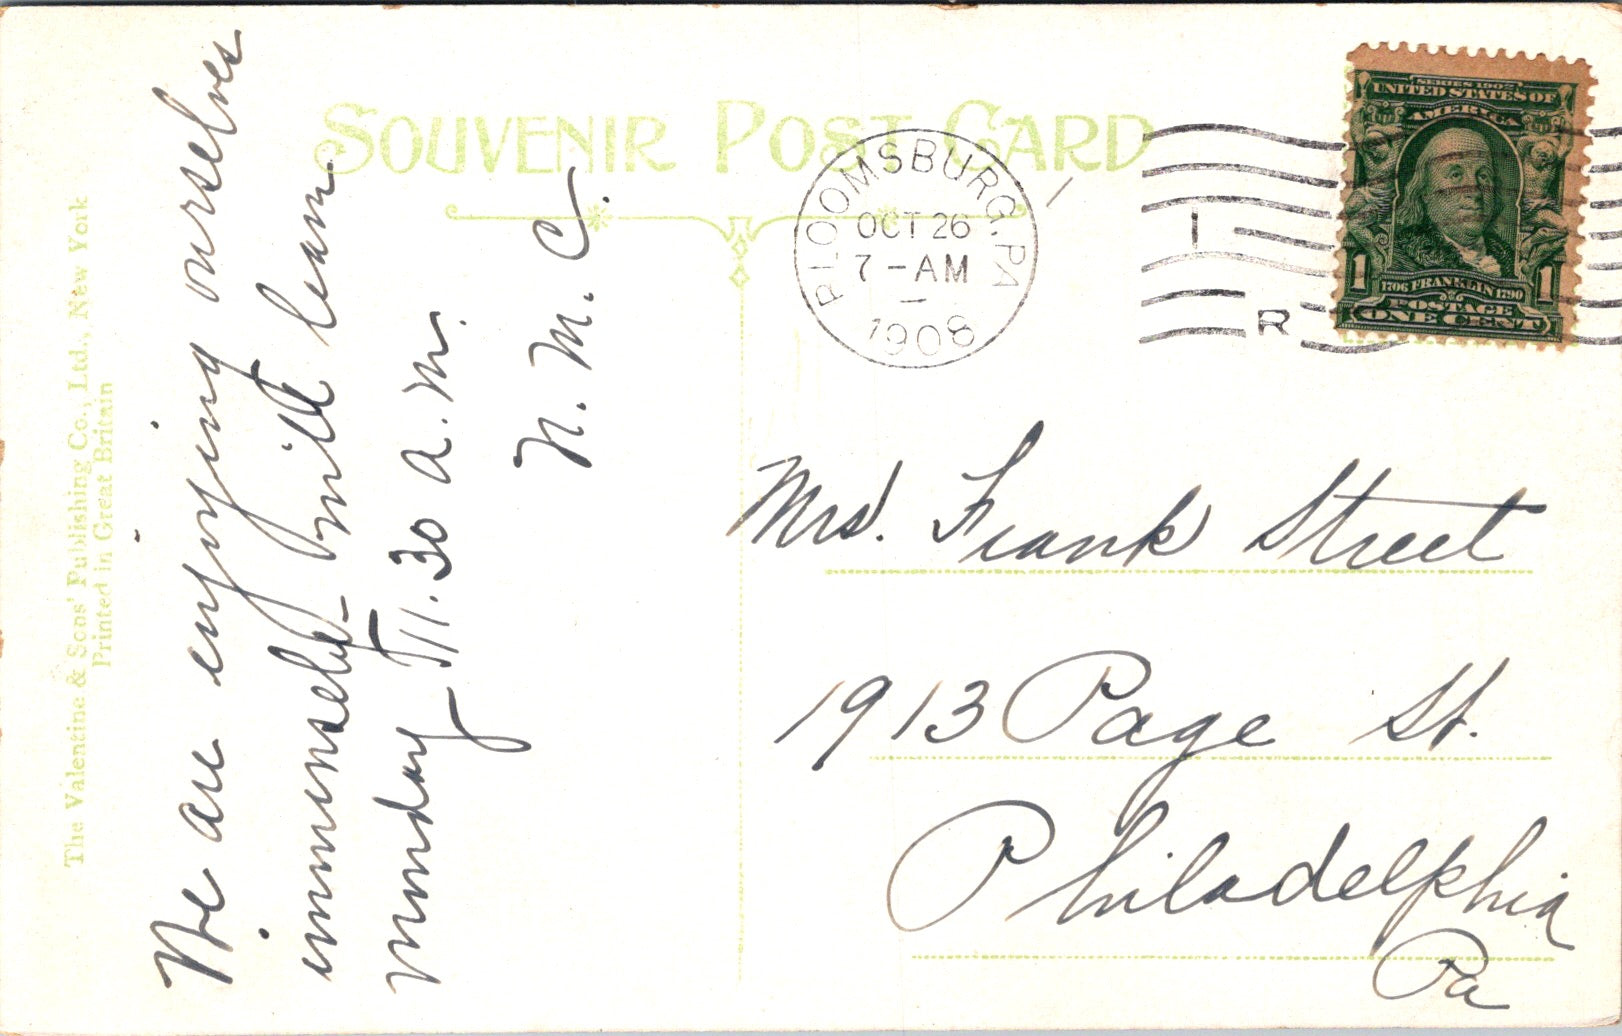 SOUVENIR POST CARD
The Valentine & Sons' Publishing Co., Ltd., New York
Printed in Great Britain
We are enjoying ourselves
immensely - will leave
Monday - 11.30 A.M.
N. M. C.
BLOOMSBURG, PA
OCT 26
7 - AM
1908
1
R
SERIES 1902
UNITED STATES OF
AMERICA
1 1
1706 FRANKLIN 1790
POSTAGE
ONE CENT
Mrs. Frank Street
1913 Page St.
Philadelphia
Pa